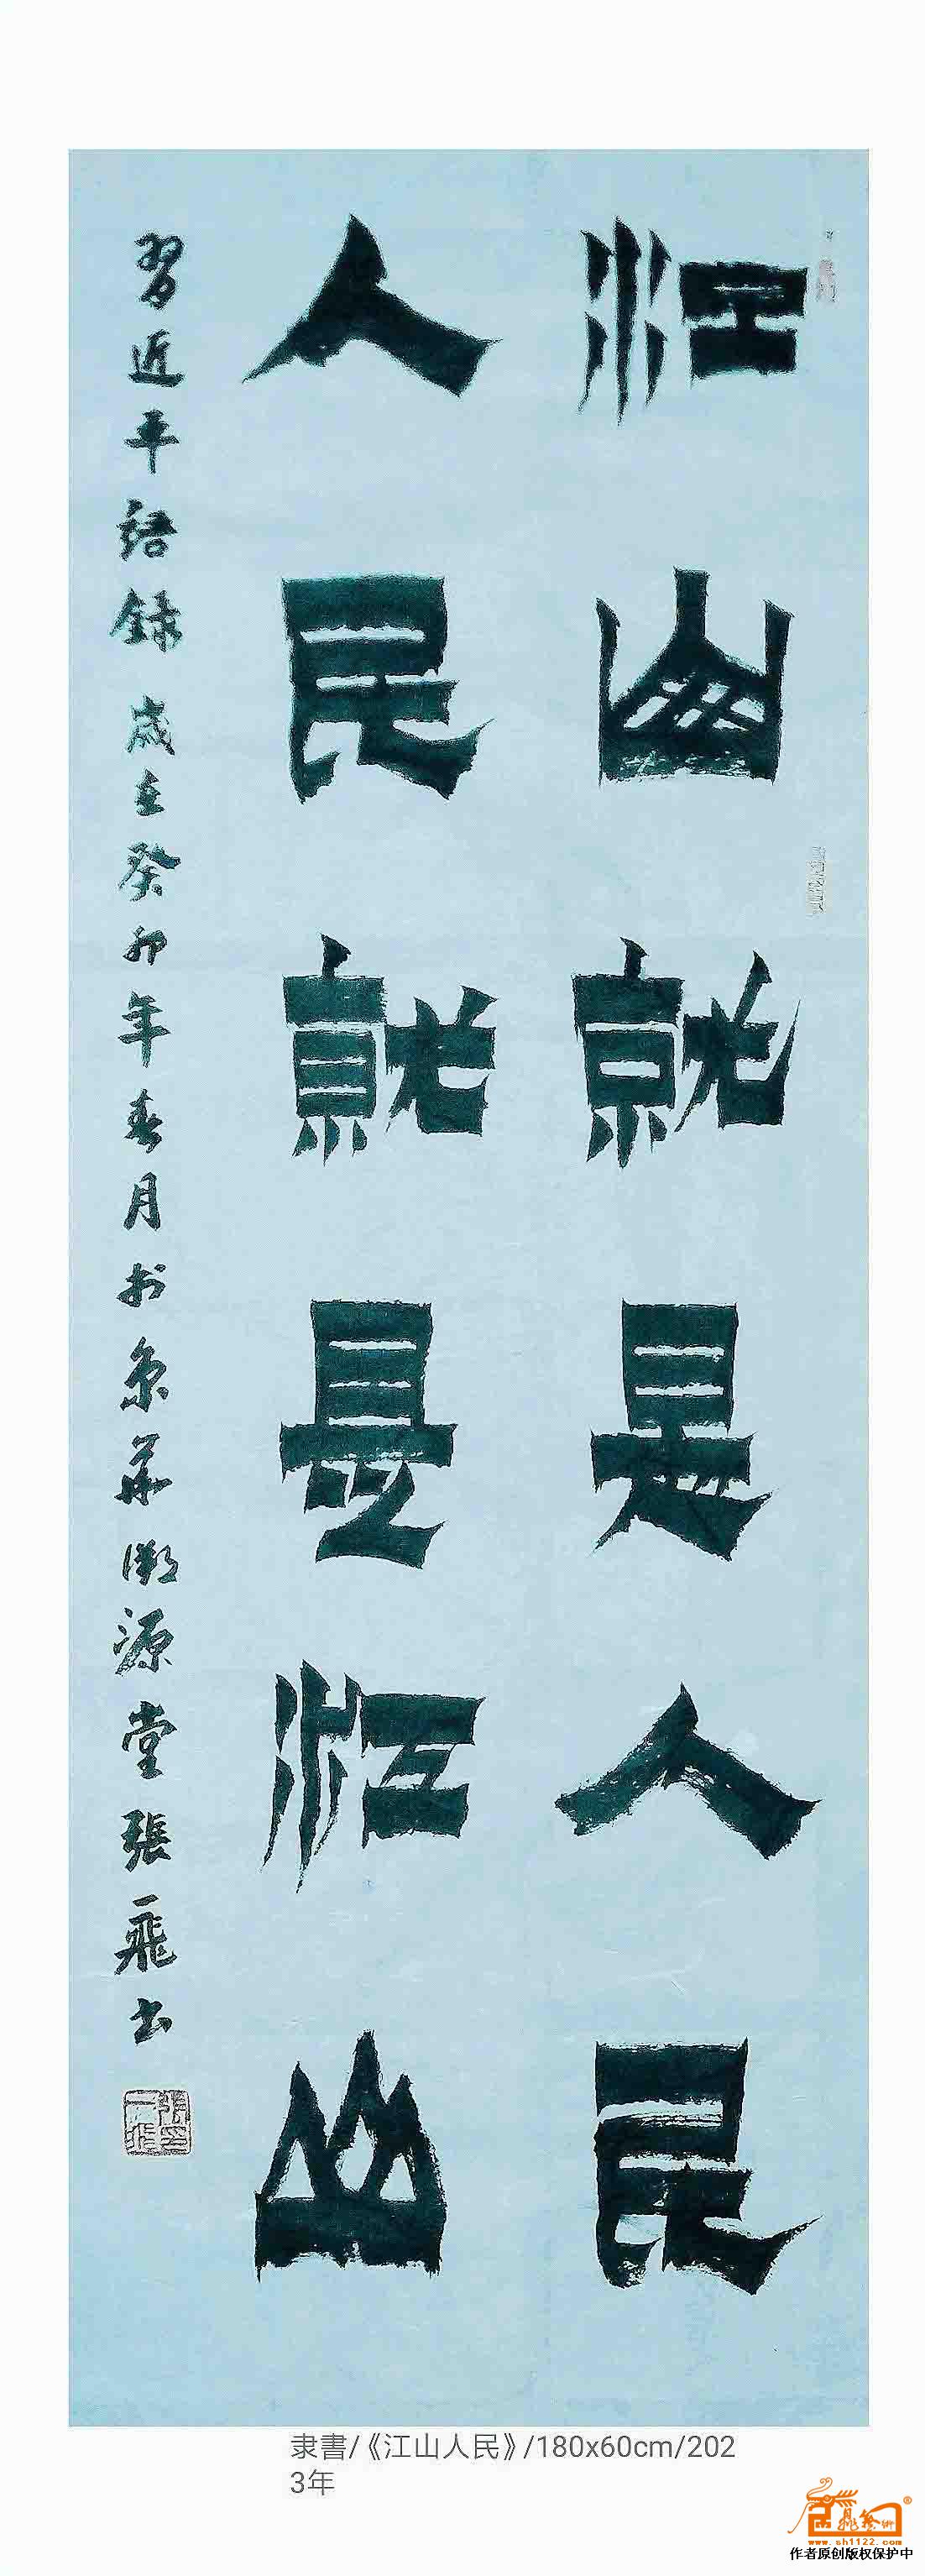 江山就是人民
人民就是江山
習近平語録 歲在癸卯年春月於京華溯源堂張一飛書
張一飛印
隶書/《江山人民》/180x60cm/202
3年
www.sh1122.com
作者原创版权保护中